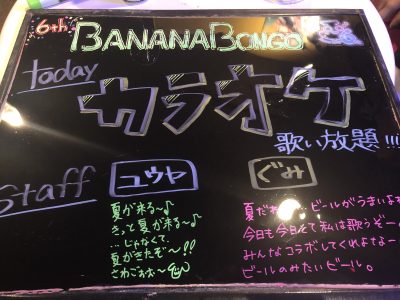 6th
BANANA BONGO
today
カラオケ
歌い放題!!!
Staff
ユウヤ
ぐみ
夏が来る〜♪
きっと夏が来る〜♪
…じゃなくて、
夏がきたぞ〜!!
さわごぉぉ〜
夏だねー。ビールがうまいよね
今日も今日とて私は歌うぞー。
みんなコラボしてくれよなー
ビールのみたいビール。